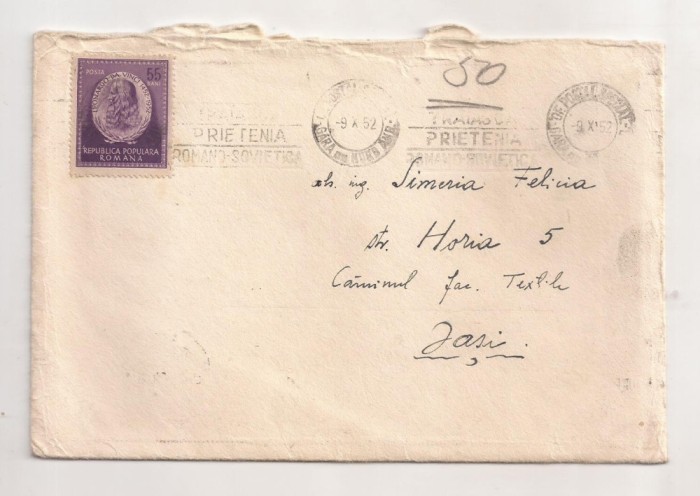 POSTA
55
BANI
LEONARDO DA VINCI 1452-1952
REPUBLICA POPULARA
ROMANA
TRAIASCA
PRIETENIA
ROMANO-SOVIETICA
GARA
-9 X 52
50
TRAIASCA
PRIETENIA
ROMANO-SOVIETICA
-9 X 52
ing. Simeria Felicia
str. Horia 5
Căminul fac. Textile
Jași